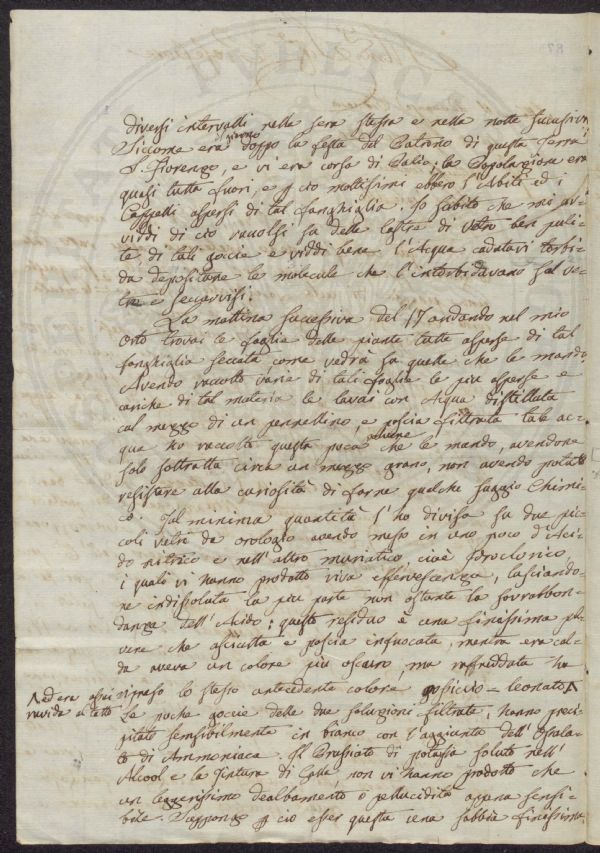 diversi intervalli nella sera stessa e nella notte successiva
Siccome era giorno doppo la festa del Patrono di questa Terra
S. Fiorenzo, e vi era corsa di Palio; la Popolazione era
quasi tutta fuori, e p ciò moltissimi ebbero l'Abiti ed i
Cappelli aspersi di tal fanghiglia. Io subito che mi av-
viddi di ciò raccolsi su delle lastre di Vetro ben puli-
te, di tali goccie e viddi bene l'Acqua cadutavi torbi-
da depositare le molecule che l'intorbidavano sul ve-
tro e seccarvisi.
La mattina successiva del 17 andando nel mio
Orto trovai le foglie delle piante tutte asperse di tal
fanghiglia seccata, come vedrà su quelle che le mando
Avendo raccolto varie di tali foglie le più asperse e
cariche di tal materia le lavai con Acqua distillata
col mezzo di un pennellino, e poscia filtrata tale ac-
qua ho raccolto questa poca polvere che le mando, avendone
solo sottratta circa un mezzo grano, non avendo potuto
resistere alla curiosità di farne qualche saggio Chimi-
co. Tal minima quantità l'ho divisa su due pic-
coli vetri da orologio avendo messo in uno poco d'Aci-
do nitrico e nell'altro muriatico, cioè Idroclorico,
i quali vi hanno prodotto viva effervescenza, lasciando-
ne indissoluta la più parte non ostante la sovrabbon-
danza dell'Acido: questo residuo è una finissima pol-
vere che asciutta e poscia infuocata, mentre era cal-
da aveva un colore più oscuro, ma raffreddata ha
ripreso lo stesso antecedente colore gossiccio = leonato Λ
Λ ed era assai
ruvida al tatto
Le poche goccie delle due soluzioni filtrate, hanno preci-
pitato sensibilmente in bianco con l'aggiunta dell'Ossala-
to di Ammoniaca. Il Prussiato di potassa soluto nell'
Alcool e la Tintura di Galla, non vi hanno prodotto che
un leggerissimo dealbamento o pellucidità appena sensi-
bile. Suppongo p ciò esser questa una sabbia finissima